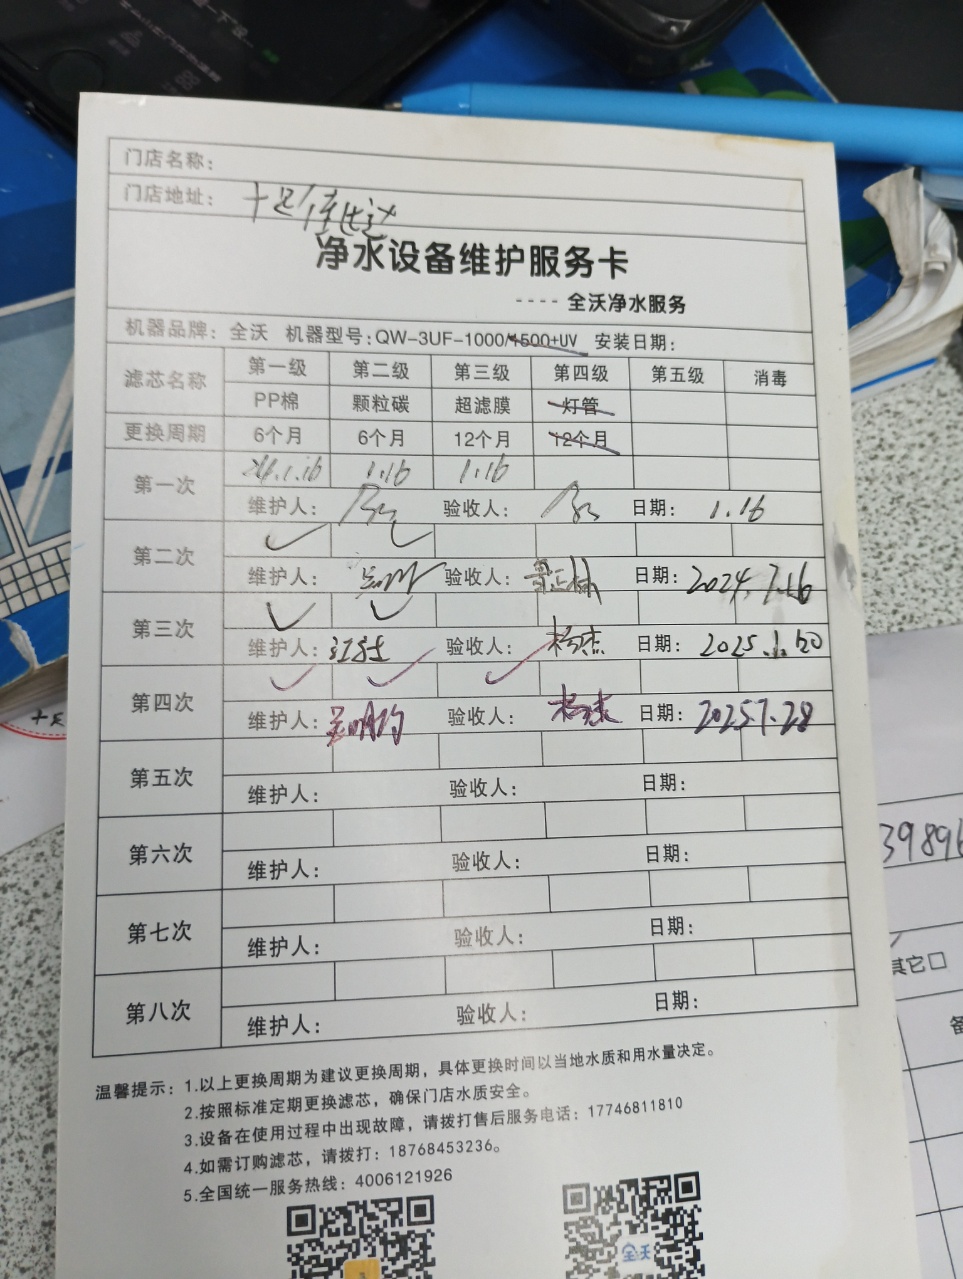 门店名称：
门店地址： 十足
净水设备维护服务卡
---- 全沃净水服务
机器品牌：全沃 机器型号：QW-3UF-1000/1500+UV 安装日期：
滤芯名称 第一级 第二级 第三级 第四级 第五级 消毒
PP棉 颗粒碳 超滤膜 灯管
更换周期 6个月 6个月 12个月 12个月
第一次 24.1.16 1.16 1.16
维护人： 验收人： 日期： 1.16
第二次 ✓ ✓
维护人： 验收人： 日期： 2024.7.16
第三次 ✓ ✓
维护人： 验收人： 杨杰 日期： 2025.1.20
第四次 ✓ ✓ ✓
维护人： 验收人： 杨杰 日期： 2025 7.28
第五次
维护人： 验收人： 日期：
第六次
维护人： 验收人： 日期：
第七次
维护人： 验收人： 日期：
第八次
维护人： 验收人： 日期：
温馨提示：1.以上更换周期为建议更换周期，具体更换时间以当地水质和用水量决定。
2.按照标准定期更换滤芯，确保门店水质安全。
3.设备在使用过程中出现故障，请拨打售后服务电话：17746811810
4.如需订购滤芯，请拨打：18768453236。
5.全国统一服务热线：4006121926
全沃
39896
其它□